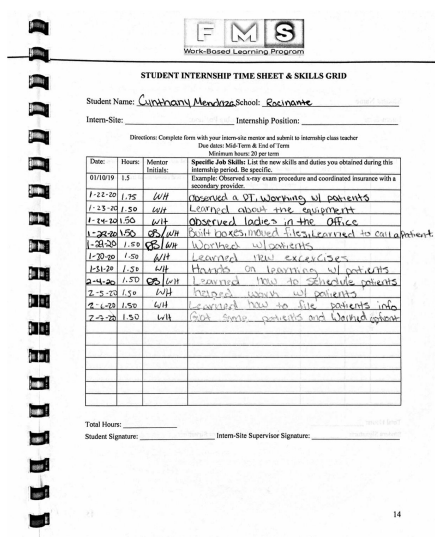 FMS
Work-Based Learning Program
STUDENT INTERNSHIP TIME SHEET & SKILLS GRID
Student Name: Cynthany Mendoza School: Rocinante
Intern-Site: Internship Position:
Directions: Complete form with your intern-site mentor and submit to internship class teacher
Due dates: Mid-Term & End of Term
Minimum hours: 20 per term
Date: Hours: Mentor Initials: Specific Job Skills: List the new skills and duties you obtained during this
internship period. Be specific.
01/10/19 1.5 Example: Observed x-ray exam procedure and coordinated insurance with a
secondary provider.
1-22-20 1.75 WH Observed a PT, Working w/ patients
1-23-20 1.50 WH Learned about the equipment
1-24-20 1.50 WH observed ladies in the office
1-28-20 1.50 WH Built boxes, moved files, Learned to call a patient.
1-29-20 1.50 WH Worked w/ patients
1-30-20 1.50 WH Learned new excercises
1-31-20 1.50 WH Hands on learning w/ patients
2-4-20 1.50 WH Learned how to schedule patients
2-5-20 1.50 WH helped work w/ patients
2-6-20 1.50 WH Learned how to file patients info
2-7-20 1.50 WH Got some patients and Worked upfront
Total Hours:
Student Signature: Intern-Site Supervisor Signature:
14